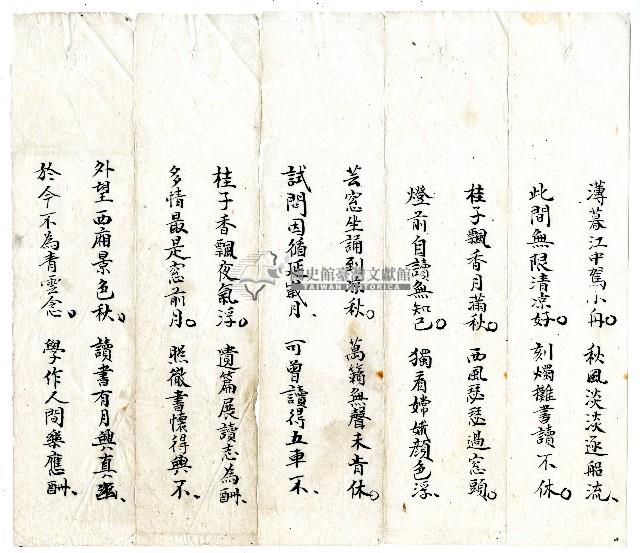 薄暮江中駕小舟。秋風淡淡逐船流。
此間無限清涼好。刻燭攤書讀不休。
桂子飄香月滿秋。西風瑟瑟過窓頭。
燈前自讀無知己。獨看嫦娥顏色浮、
芸窓坐誦到深秋。萬籟無聲未肯休。
試問因循延歲月、可曾讀得五車不、
桂子香飄夜氣浮。遺篇展讀志為酬、
多情最是窓前月。照徹書懷得興不、
外望西廂景色秋。讀書有月興真幽、
於今不為青雲念。學作人間樂應酬、
史館臺灣文獻館
TAIWAN HISTORICA